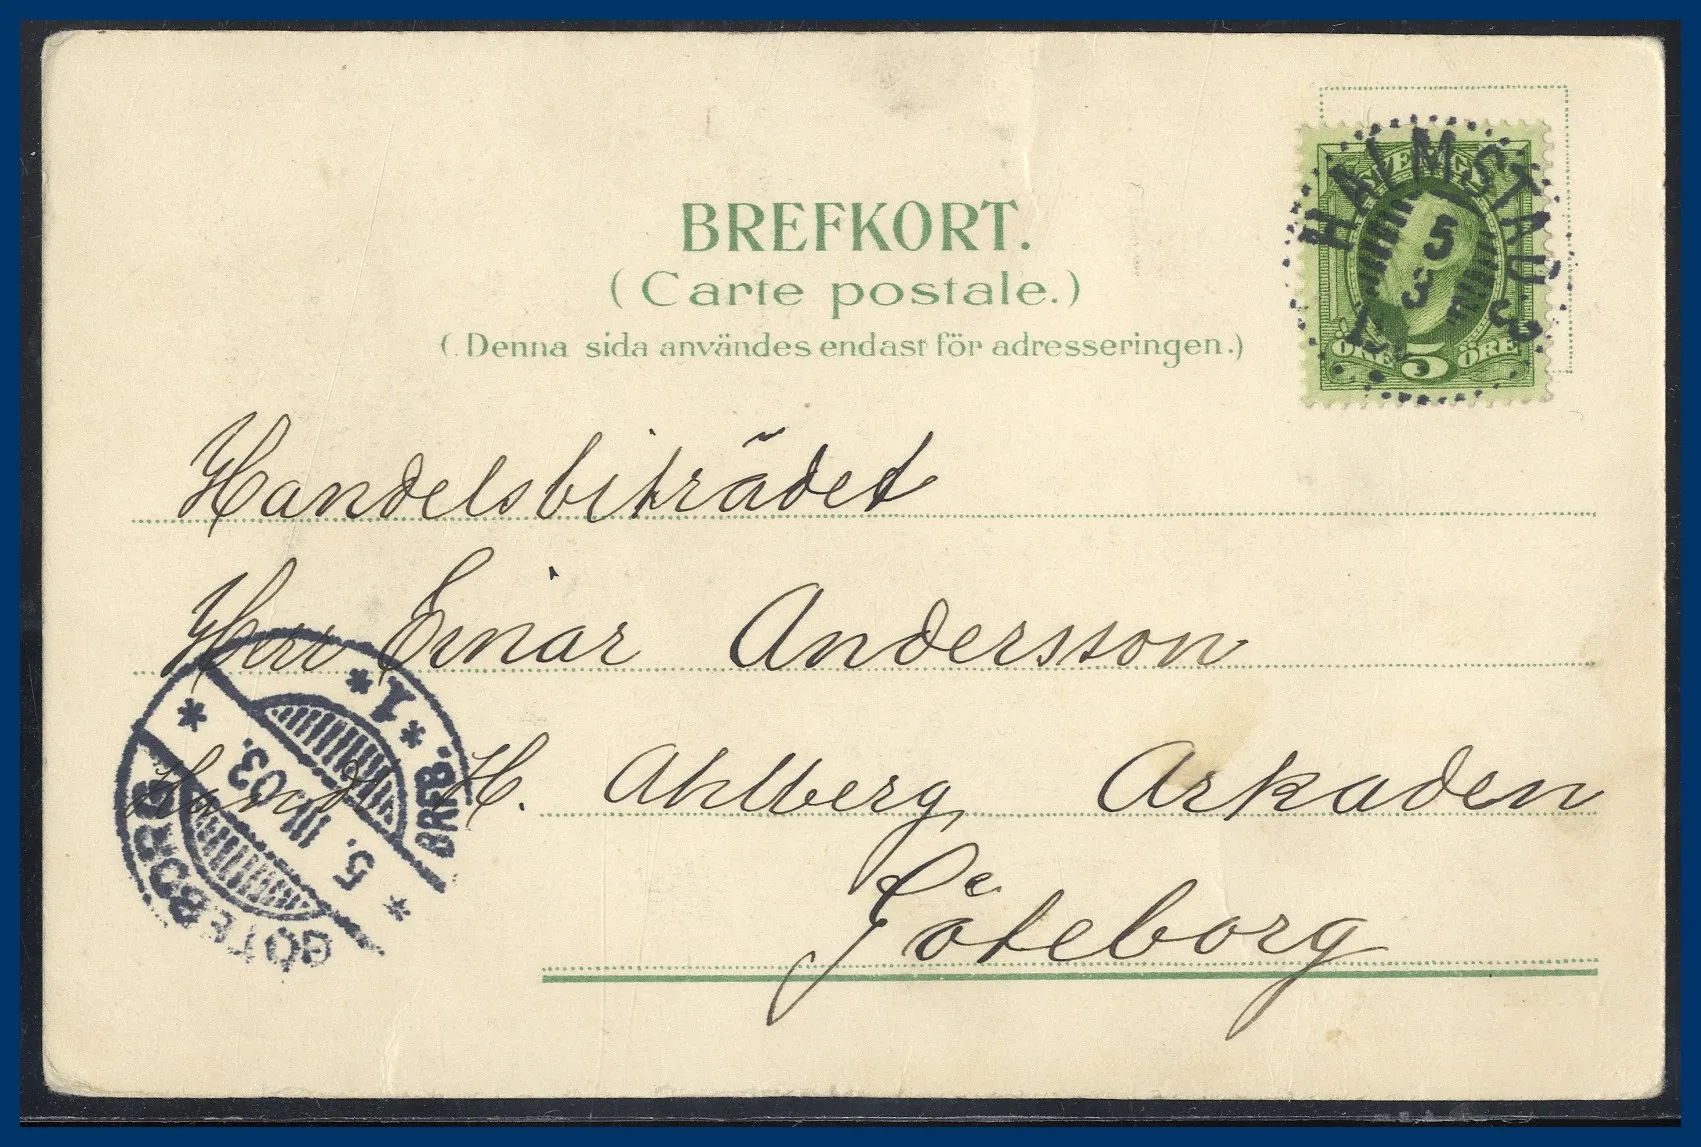 BREFKORT.
(Carte postale.)
(Denna sida användes endast för adresseringen.)
HALMSTAD 3
5
3
SVERIGE
ÖRE 5 ÖRE
Handelsbiträdet
Herr Einar Andersson
H. Ahlberg Arkaden
Göteborg
GÖTEBORG
5. III 03.
1. BRFB.